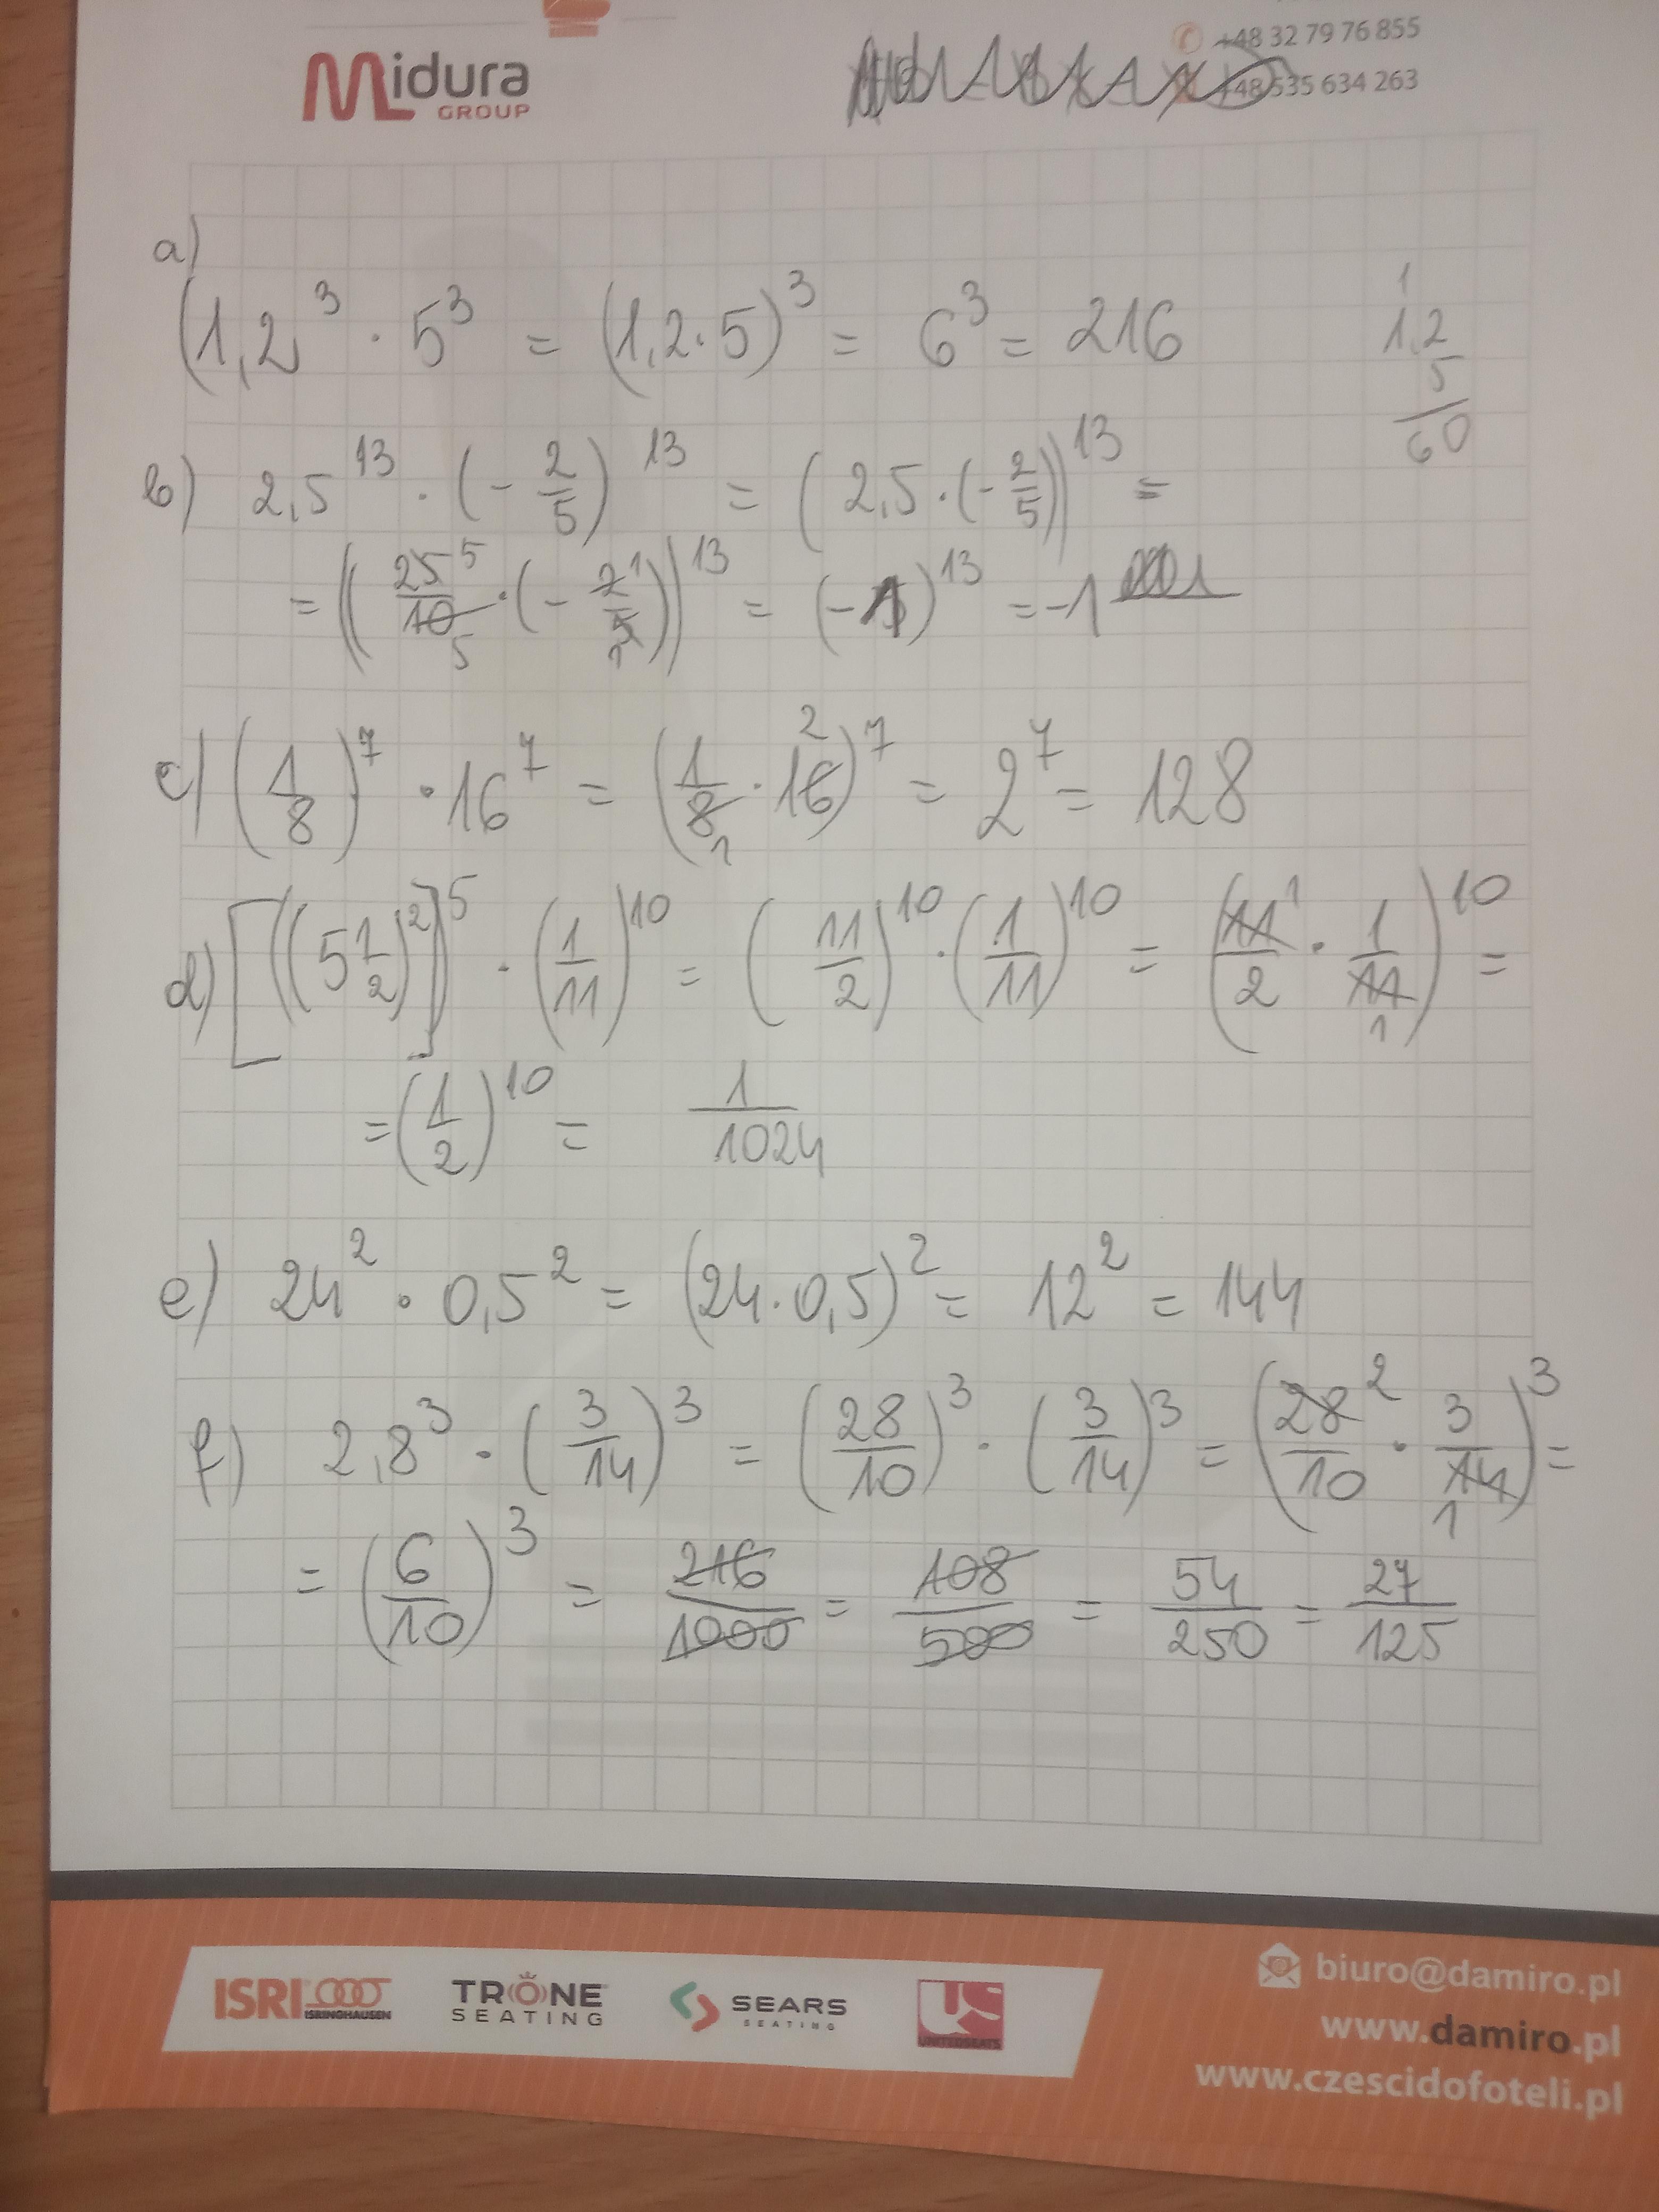 +48 32 79 76 855
Midura
GROUP
+48 535 634 263
a)
(1,2³ · 5³ = (1,2·5)³ = 6³ = 216
1
1,2
5
60
b) 2,5¹³ · (-2/5)¹³ = (2,5·(-2/5))¹³ =
= ((25/10 · (-2/5))¹³ = (-1)¹³ = -1
c) (1/8)⁷ · 16⁷ = (1/8 · 16)⁷ = 2⁷ = 128
d) [((5 1/2)²)]⁵ · (1/11)¹⁰ = (11/2)¹⁰ · (1/11)¹⁰ = (11/2 · 1/11)¹⁰ =
= (1/2)¹⁰ = 1/1024
e) 24² · 0,5² = (24·0,5)² = 12² = 144
f) 2,8³ · (3/14)³ = (28/10)³ · (3/14)³ = (28/10 · 3/14)³ =
= (6/10)³ = 216/1000 = 108/500 = 54/250 = 27/125
ISRI ISRINGHAUSEN
TRONE
SEATING
SEARS
SEATING
US
UNITEDSEATS
biuro@damiro.pl
www.damiro.pl
www.czescidofoteli.pl